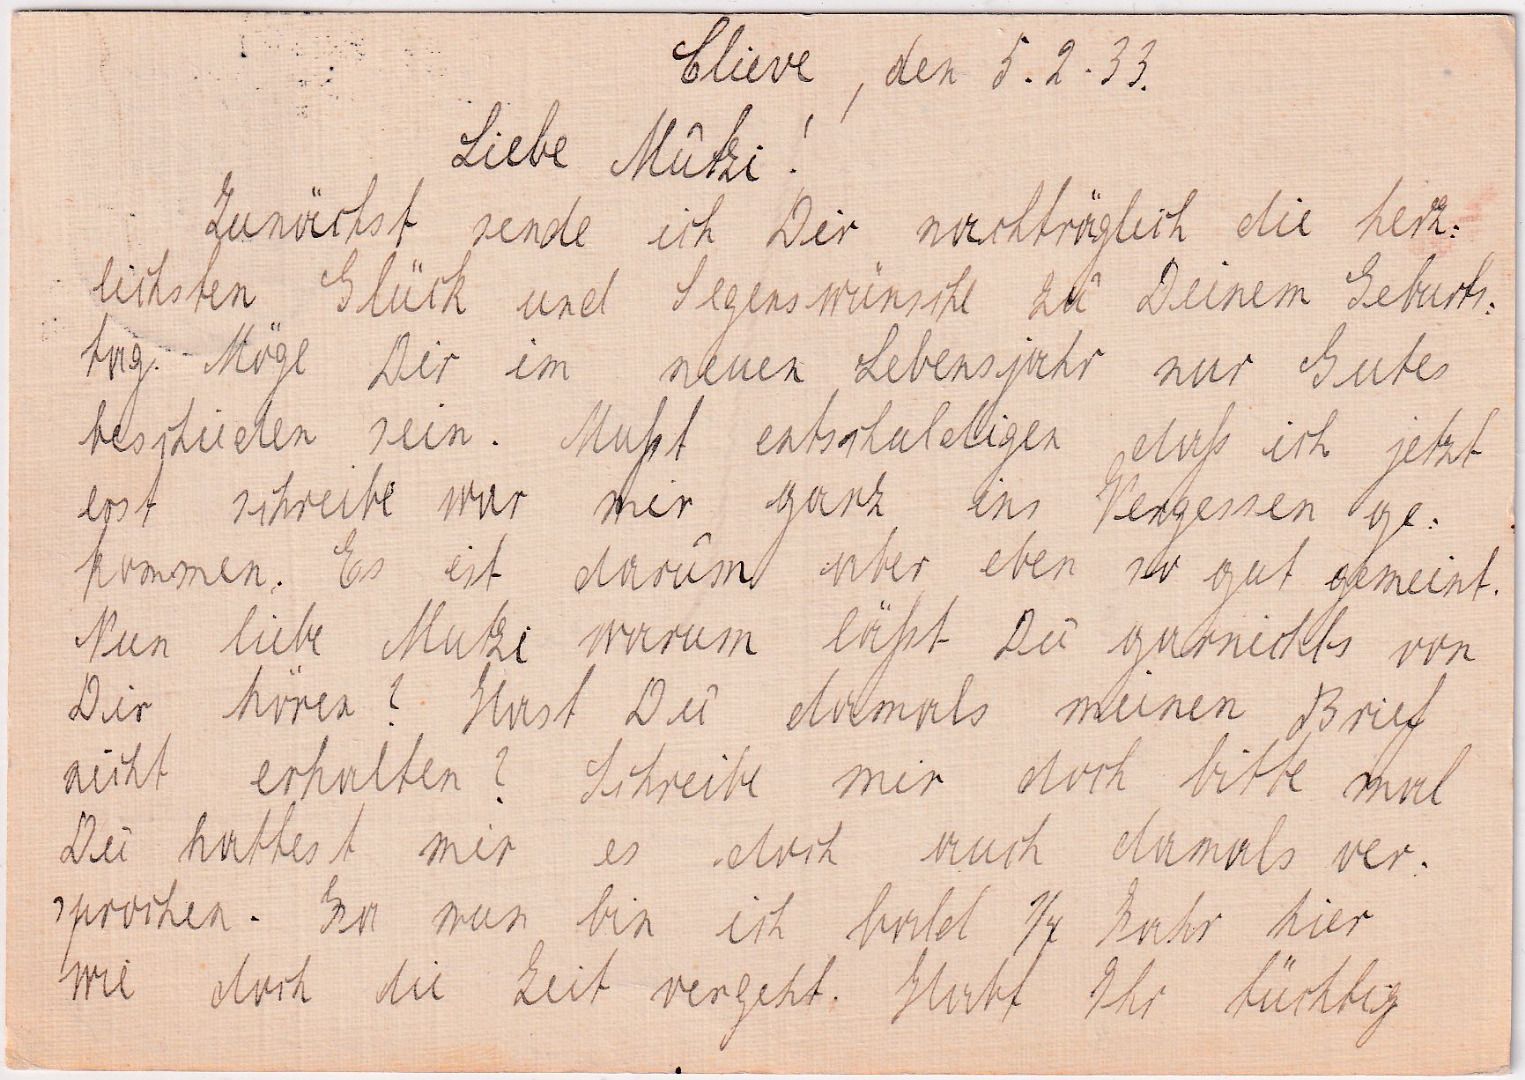 Clieve, den 5.2.33.
Liebe Mutzi!
Zunächst sende ich Dir nachträglich die herz:
lichsten Glück und Segenswünsche zu Deinem Geburts:
tag. Möge Dir im neuen Lebensjahr nur Gutes
beschieden sein. Mußt entschuldigen daß ich jetzt
erst schreibe war mir ganz ins Vergessen ge:
kommen. Es ist darum aber eben so gut gemeint.
Nun liebe Mutzi warum läßt Du garnichts von
Dir hören? Hast Du damals meinen Brief
nicht erhalten? Schreibe mir doch bitte mal
Du hattest mir es doch auch damals ver:
sprochen. Ja nun bin ich bald 1/4 Jahr hier
wie doch die Zeit vergeht. Habt Ihr tüchtig